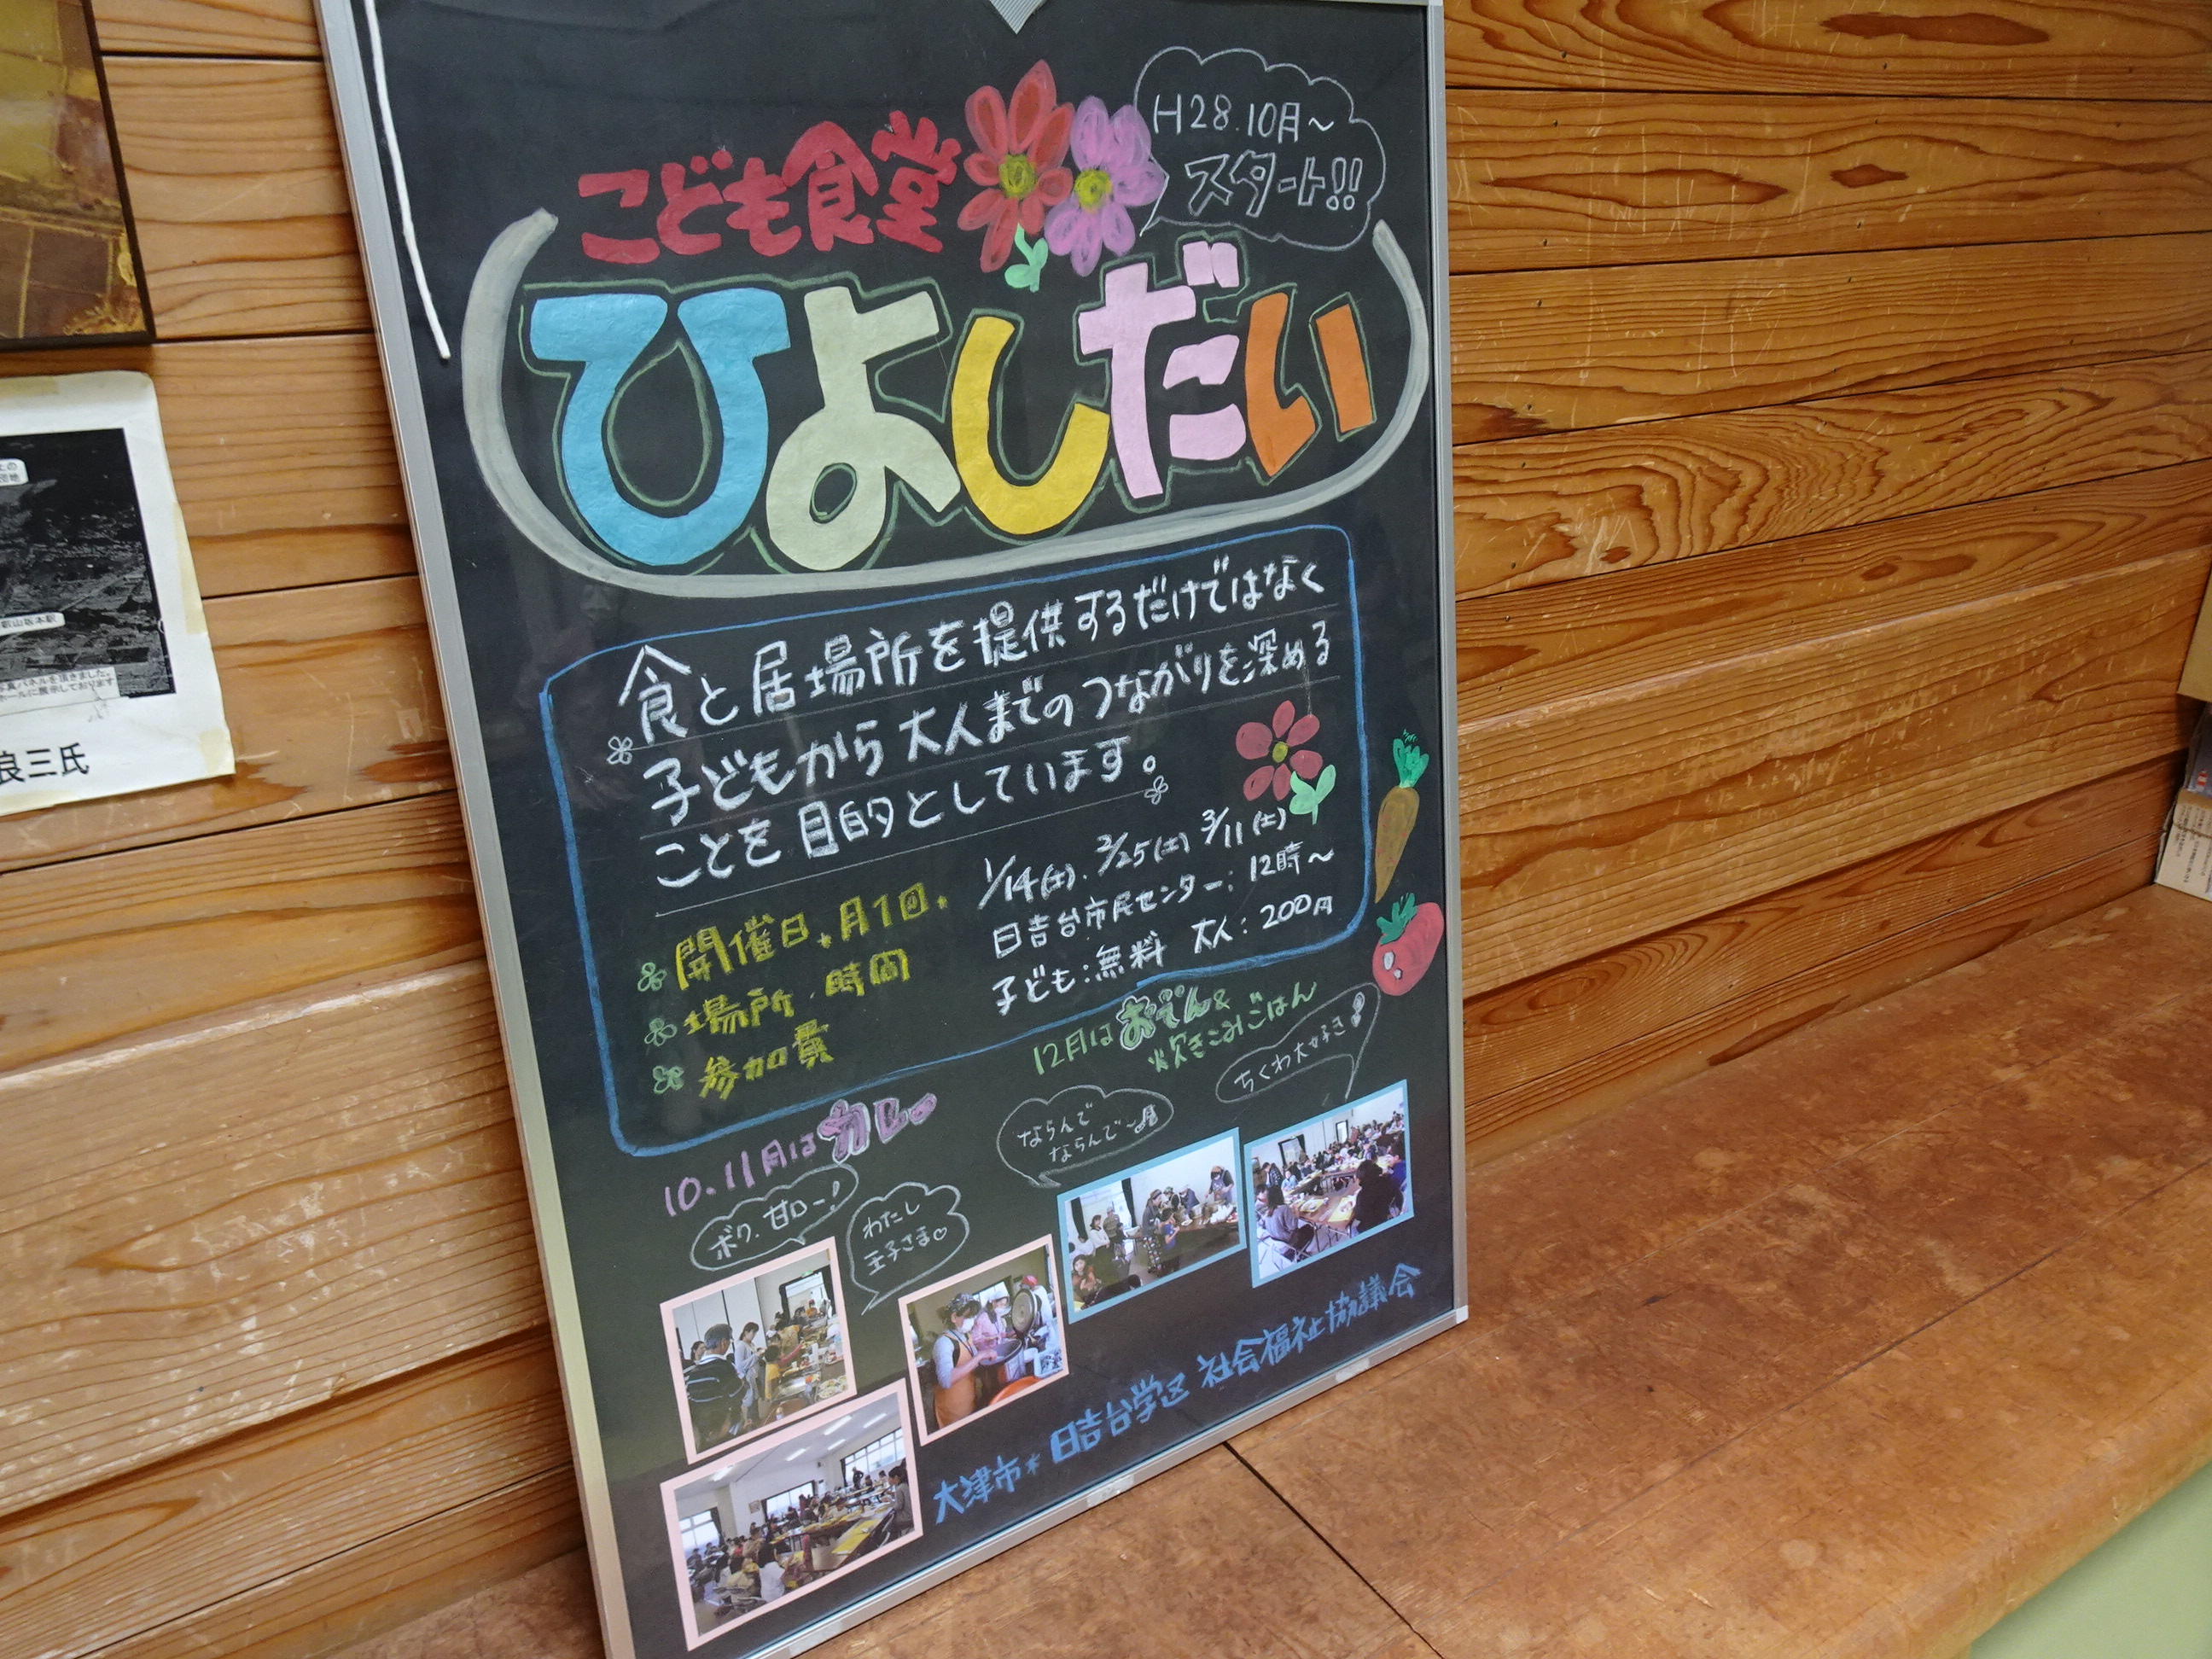 H28.10月〜
スタート!!
こども食堂
ひよしだい
食と居場所を提供するだけではなく
子どもから大人までのつながりを深める
ことを目的としています。
開催日.月1回.
1/14(土). 2/25(土) 3/11(土)
場所.時間
日吉台市民センター: 12時〜
参加費
子ども:無料 大人:200円
12月はおでん&
炊きこみごはん
ちくわ大好き!
10.11月はカレー
ならんで
ならんで〜♬
ボク.甘口ー!
わたし
玉子さま♡
大津市*日吉台学区 社会福祉協議会
叡山坂本駅
真パネルを頂きました。
ホールに展示しております
良三氏